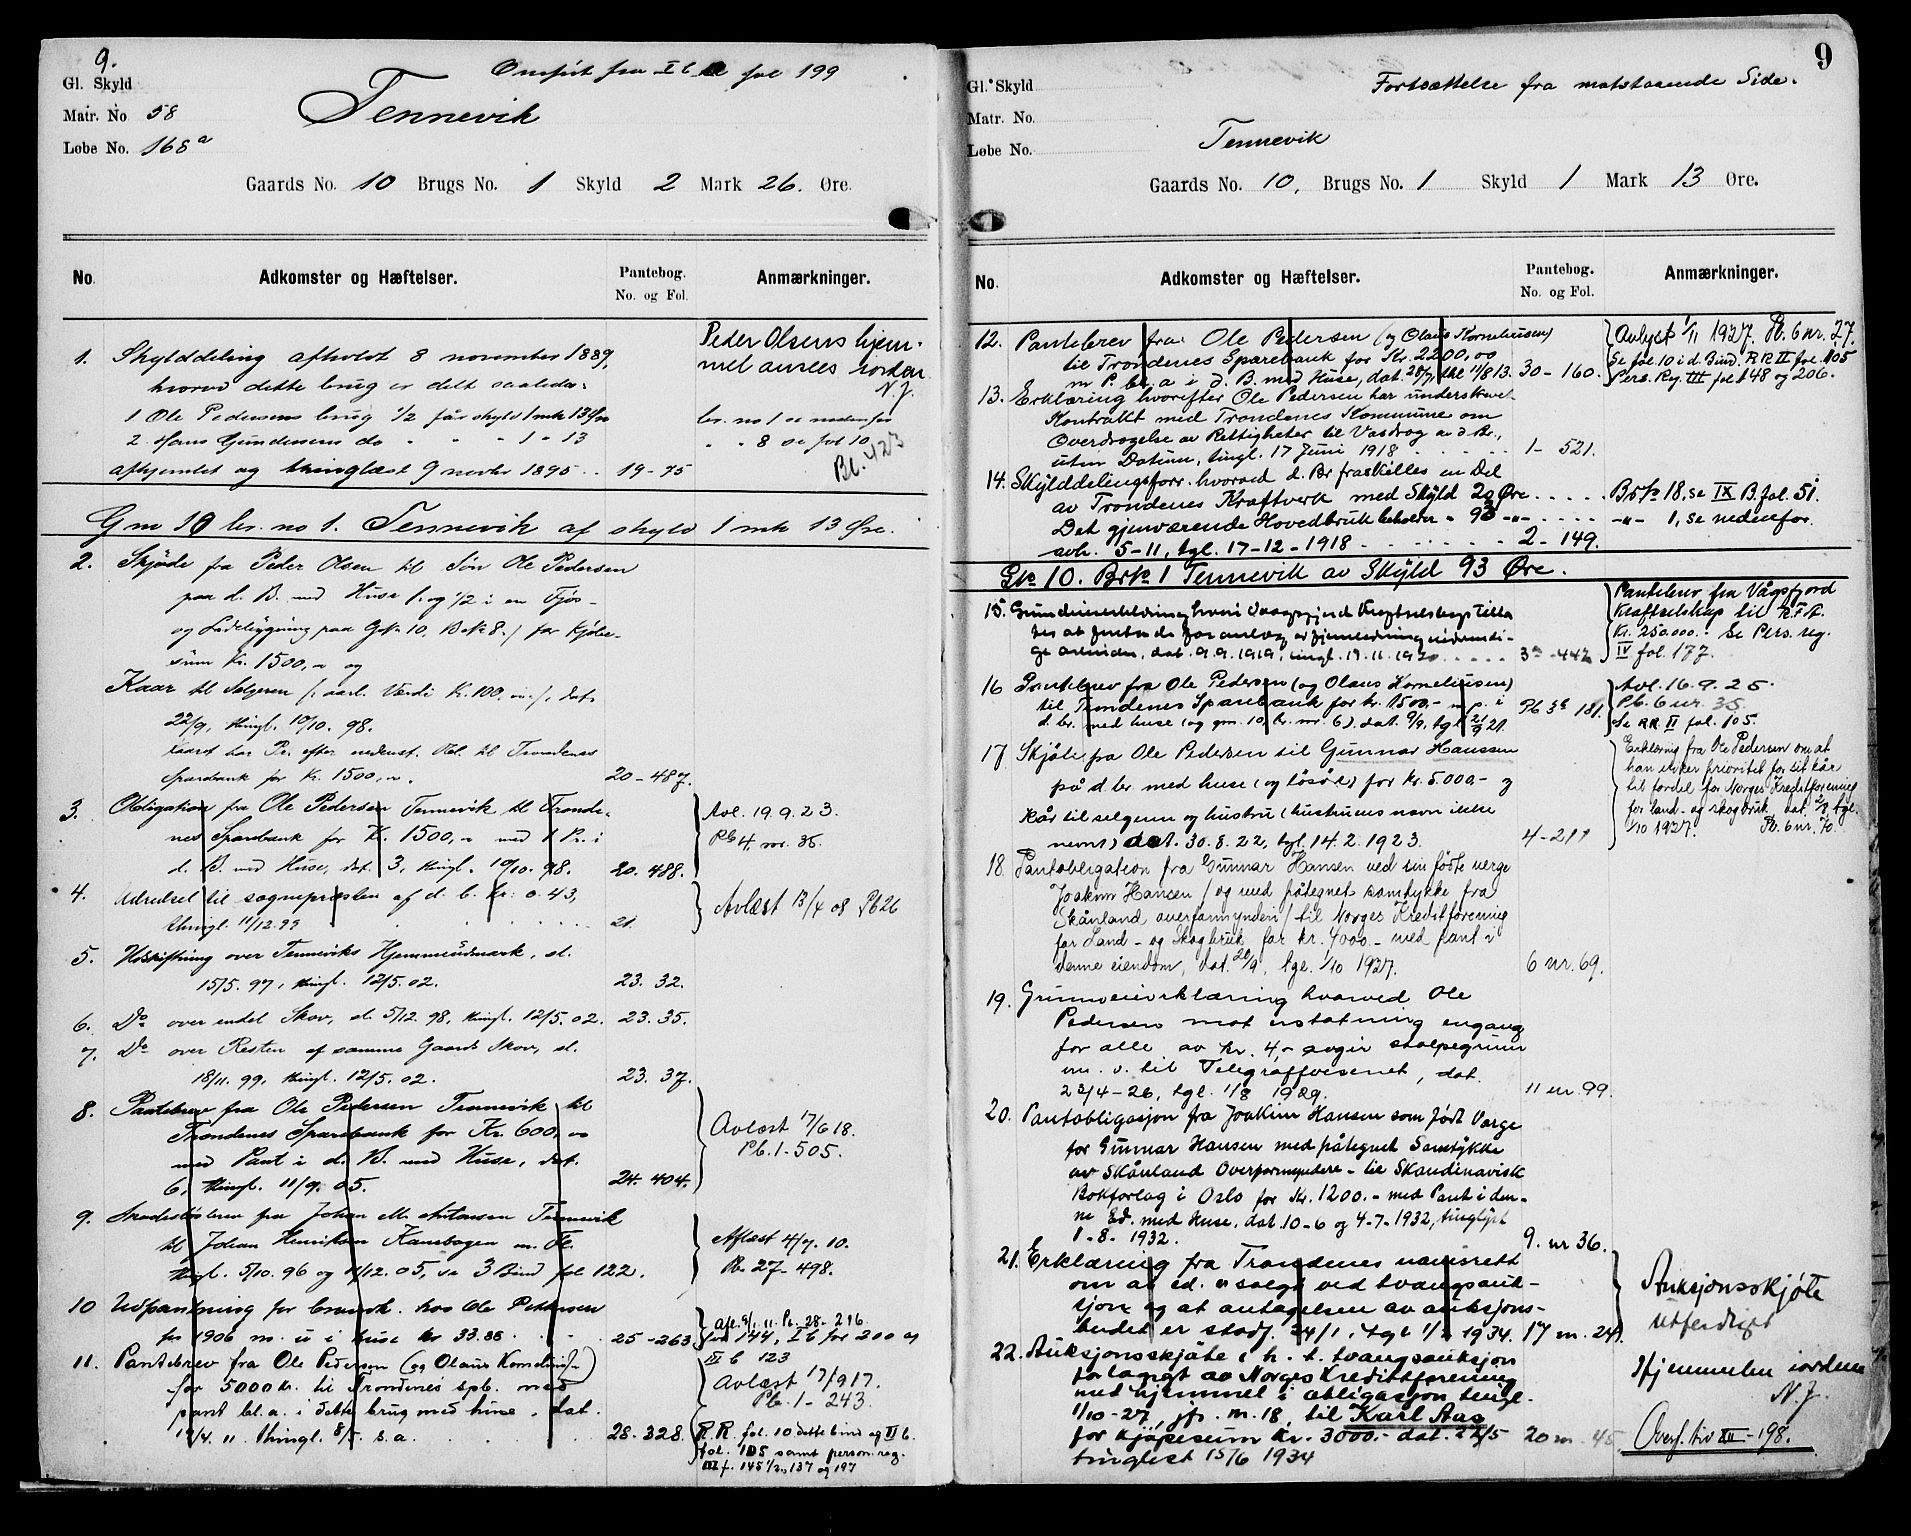 9.
Gl. Skyld
Matr. No 58
Løbe No. 168a
Omført fra I b fol 199
Tennevik
Gaards No. 10 Brugs No. 1 Skyld 2 Mark 26. Øre.
No. Adkomster og Hæftelser. Pantebog. No. og Fol. Anmærkninger.
Peder Olsens hjem-
mel ansees i orden
N.J.
1. Skylddeling afholdt 8 november 1889,
hvorved dette brug er delt saaledes:
1 Ole Pedersens brug 1/2 får skyld 1 mk 13 Øre br. no 1 se nedenfor
2. Hans Gundersens do " " " 1 " 13 " " 8 se fol 10
Bl. 423
afhjemlet og thinglæst 9 novbr 1895 .. 19-75
Gm 10 br. no 1. Tennevik af skyld 1 mk 13 Øre.
2. Skjøde fra Peder Olsen til Søn Ole Pedersen
paa d. B. med Huse /: og 1/2 i en Fjøs-
og Ladebygning paa G.N. 10, B.N. 8./ for kjøbe-
sum Kr. 1500,00 og
Kaar til Sælgeren /: aarl. Værdi Kr. 100,00 :/, dat.
22/9, thingl. 10/10. 98.
Kaaret har Pr. efter nedenst. Obl. til Trondenes
Sparebank for Kr. 1500,00. 20-487.
3. Obligation fra Ole Pedersen Tennevik til Tronde-
nes Sparebank for Kr. 1500,00 med 1 Pr. i
d. B. med Huse, dat. 3, thingl. 10/10. 98. 20. 488.
Avl. 19.9.23.
Pb 4 nr. 35.
4. Udredsel til sognepræsten af d. b. kr. 0.43,
thingl. 11/12.99 21.
Avlæst 13/4 08 Pb26
5. Udskiftning over Tenneviks Hjemmeudmark, d.
15/5. 97, thingl. 12/5. 02. 23. 32.
6. Do over endel Skov, d. 5/12. 98, thingl. 12/5. 02. 23. 35.
7. Do over Resten af samme Gaards Skov, d.
18/11. 99, thingl. 12/5. 02. 23. 37.
8. Pantebrev fra Ole Pedersen Tennevik til
Trondenes Sparebank for Kr. 600,00
med Pant i d. B. med Huse, dat.
6, thingl. 11/9. 05. 24. 404.
Avlæst 17/6 18.
Pb. 1-505.
9. Skadesløsbrev fra Johan M. Antonsen Tennevik
til Johan Henrikson Kanebogen m. Fl.
thingl. 5/10. 96 og 11/12. 05, se 3 Bind fol 122.
Aflæst 4/7. 10.
Pb. 27-498.
10 Udpantning for brandk. hos Ole Pettersen
for 1906 m. u i huse kr 33.88 . . . 25-263
fol 144, I b fol 200 og
III b 123
11. Pantebrev fra Ole Pedersen (og Olaus Kornelius/n)
for 5000 kr. til Trondenes spb. med
pant bl. a. i dette brug med huse, dat.
19/4. 11 thingl. 8/5. s. a. 28-328.
Avlæst 17/9 17.
Pb. 1-243.
R. R. fol. 10 dette bind og II b.
fol. 105 samt person. reg.
III f. 145 1/2, 137 og 197
9
Gl. Skyld
Matr. No.
Løbe No.
Fortsættelse fra motstaaende Side.
Tennevik
Gaards No. 10, Brugs No. 1 Skyld 1 Mark 13 Øre.
No. Adkomster og Hæftelser. Pantebog. No. og Fol. Anmærkninger.
12. Pantebrev fra Ole Pedersen (og Olaus Kornelius/en)
til Trondenes Sparebank for Kr. 2200,00
m P. bl. a i d. B. med Huse, dat. 28/7, tgl 11/8 13. 30-160.
Avlyst 1/11 1927. Pb. 6 nr. 27.
Se fol. 10 i d. Bind. R.R II fol. 105
Pers. Reg. III fol 148 og 206.
13. Erklæring hvorefter Ole Pedersen har underskrevet
Kontrakt med Trondenes Kommune om
Overdragelse av Rettigheter til Vasdrag av d. Br.,
uten Datum, tingl. 17 Juni 1918 . . . 1-521.
14. Skylddelingsforr. hvorved d. Br fraskilles en Del
av Trondenes Kraftverk med Skyld 20 Øre . . . . . Brk. 18, se IX B. fol. 51.
Det gjenværende Hovedbruk beholder " 93 -"- . . . . -"- 1, se nedenfor.
avh. 5-11, tgl. 17-12-1918 . . . 2-149.
Gk. 10. Brk. 1 Tennevik av Skyld 93 Øre.
15. Grundeiererklæring hvori Vaagsfjord Kraftselskap tilla-
tes at
ge dat. 9.9.1919, tingl. 19.11.1920 . . . . 3a-442
Pantebrev fra Vågsfjord
Kraftselskap til
Kr. 250.000.- Se Pers. reg.
IV fol. 177.
16 Pantebrev fra Ole Pedersen (og Olaus Korneliussen)
til Trondenes Sparebank for kr. 1500,- m p. i
d. br. med huse (og gm. 10, br. nr. 6), dat. 9/9, tgl 21/9 21. Pb 3b 181.
Avl. 16.9.25.
Pb. 6 nr. 35.
Se RR. II fol. 105.
17 Skjøte fra Ole Pedersen til Gunnar Hanssen
på d br. med huse (og løsøre) for kr. 5.000,- og
kår til selgeren og hustru (hustruens navn ikke
nevnt) dat. 30.8.22, tgl. 14.2.1923. 4-211
Erklæring fra Ole Pedersen om at
han viker prioritet for sit kår
til fordel for Norges Kreditforening
for Land- og Skogbruk, dat. 2/9 tgl.
1/10 1927. Pb. 6 nr. 70.
18. Pantobligation fra Gunnar Hansen ved sin fødte verge
Joakim Hansen / og med påtegnet samtykke fra
Skånland overformynderi / til Norges Kreditforening
for Land- og Skogbruk for kr. 4000.- med pant i
denne eiendom, dat. 26/9, tgl. 1/10 1927. 6 nr. 69.
19. Grunneiererklæring hvorved Ole
Pedersen mot erstatning engang
for alle av kr. 4,- avgir stolpegrunn
m. v. til Telegrafvesenet, dat.
23/4-26, tgl. 1/8 1929. 11 nr. 99.
20. Pantobligasjon fra Joakim Hansen som født Verge
for Gunnar Hansen med påtegnet Samtykke
av Skånland Overformyndere - til Skandinavisk
Bokforlag i Oslo for Kr. 1200.- med Pant i den-
ne Ed. med Huse, dat. 10-6 og 4-7-1932, tinglyst
1-8-1932. 9. nr 36.
21. Erklæring fra Trondenes namsrett
om at ed. er solgt ved tvangsauk-
sjon og at antagelsen av auksjons-
budet er stadf. 24/1, tgl. 1/2 1934. 17 nr. 24.
Auksjonsskjøte
utferdiget
22. Auksjonsskjøte i h. t. tvangsauksjon
forlangt av Norges Kreditforening
med hjemmel i obligasjon tingl.
1/10-27, jfr. nr. 18, til Karl Aas
for kjøpesum kr. 3000.- dat. 22/5 20 nr. 45.
tinglest 15/6 1934
Hjemmelen i orden
N.J.
Overf. til XII-198.